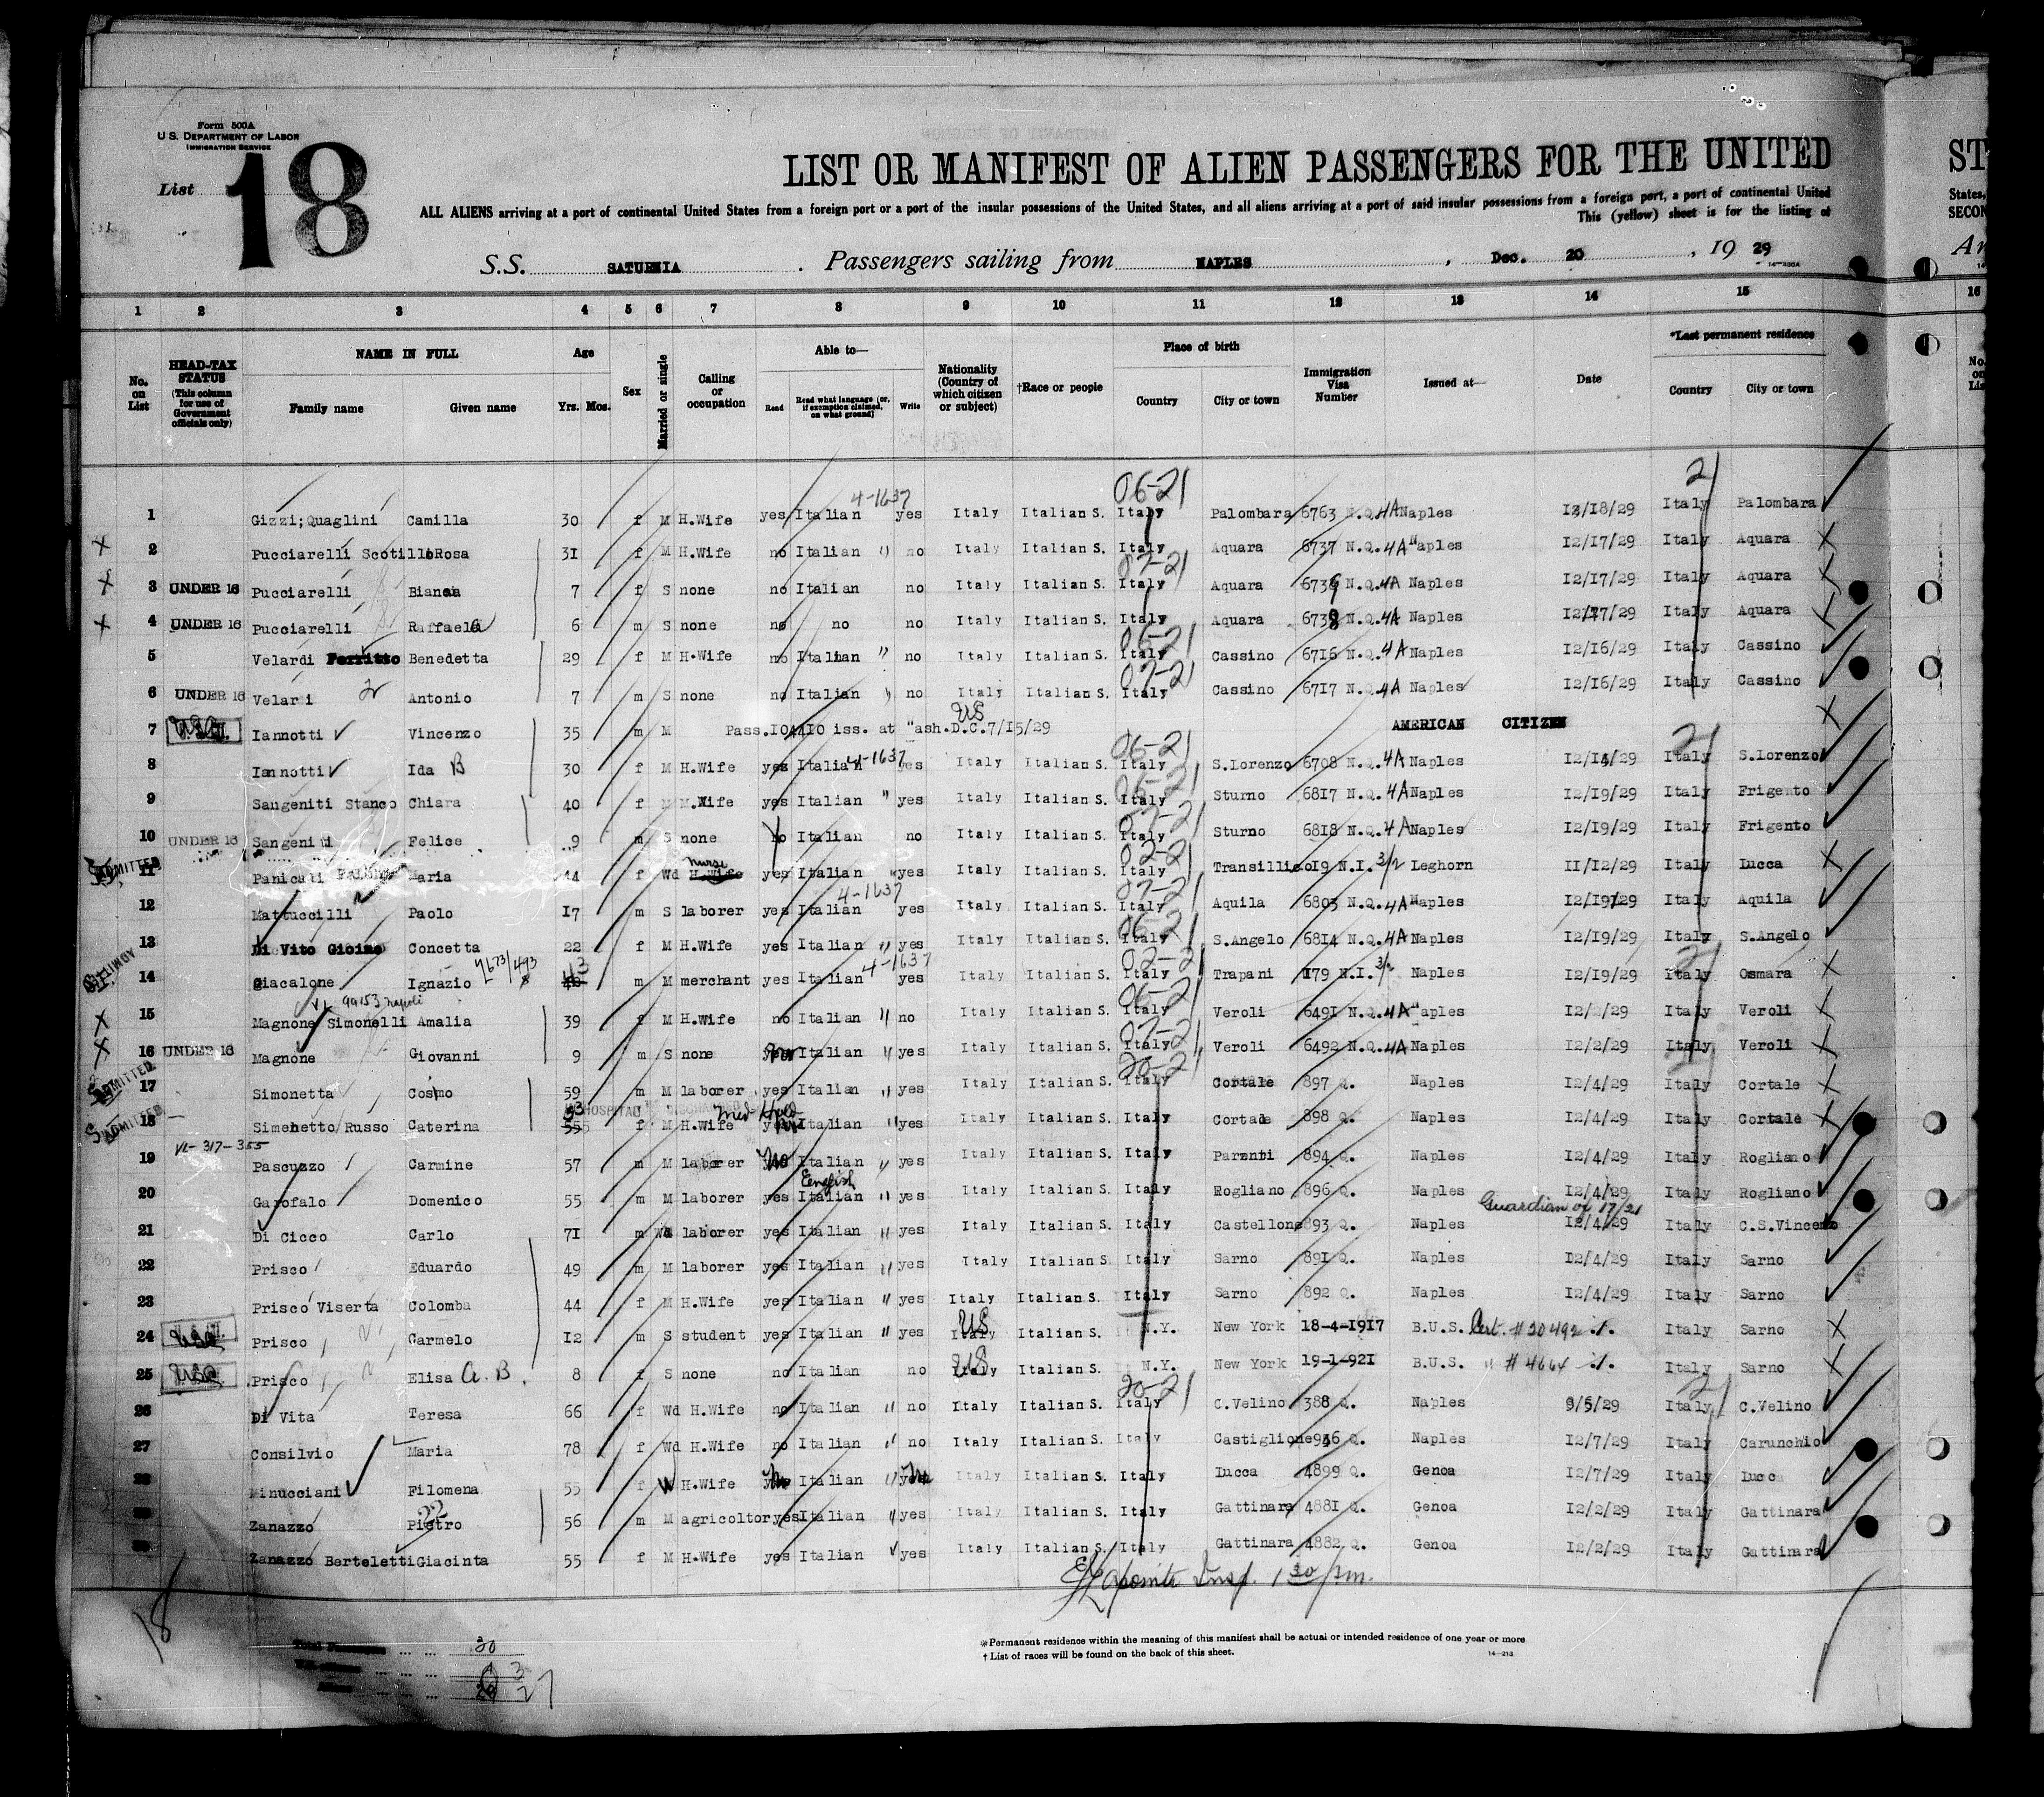 Form 500A
U. S. DEPARTMENT OF LABOR
IMMIGRATION SERVICE
List 18
LIST OR MANIFEST OF ALIEN PASSENGERS FOR THE UNITED
ST
ALL ALIENS arriving at a port of continental United States from a foreign port or a port of the insular possessions of the United States, and all aliens arriving at a port of said insular possessions from a foreign port, a port of continental United
States,
This (yellow) sheet is for the listing of
SECON
S.S. SATURNIA . Passengers sailing from NAPLES , Dec. 20 , 19 29
Ar
1 2 3 4 5 6 7 8 9 10 11 12 13 14 15 16
No. on List
HEAD-TAX STATUS (This column for use of Government officials only)
NAME IN FULL
Family name Given name
Age
Yrs. Mos.
Sex
Married or single
Calling or occupation
Able to—
Read Read what language (or, if exemption claimed, on what ground) Write
Nationality (Country of which citizen or subject)
†Race or people
Place of birth
Country City or town
Immigration Visa Number
Issued at—
Date
*Last permanent residence
Country City or town
No. on Lis
4-1637 06-21 21
1 Gizzi;Quaglini Camilla 30 f M H.Wife yes Italian yes Italy Italian S. Italy Palombara 6763 N.Q. 4A Naples 12/18/29 Italy Palombara
X 2 Pucciarelli Scotillo Rosa 31 f M H.Wife no Italian " no Italy Italian S. Italy Aquara 6737 N.Q. 4A "aples 12/17/29 Italy Aquara X
07-21
X 3 UNDER 16 Pucciarelli Bianca 7 f S none no Italian no Italy Italian S. Italy Aquara 6739 N.Q. 4A Naples 12/17/29 Italy Aquara X
X 4 UNDER 16 Pucciarelli Raffaela 6 m S none no no no Italy Italian S. Italy Aquara 6738 N.Q. 4A Naples 12/17/29 Italy Aquara X
06-21
5 Velardi Ferritto Benedetta 29 f M H.Wife no Italian " no Italy Italian S. Italy Cassino 6716 N.Q. 4A Naples 12/16/29 Italy Cassino
07-21
6 UNDER 16 Velardi Antonio 7 m S none no Italian " no Italy Italian S. Italy Cassino 6717 N.Q. 4A Naples 12/16/29 Italy Cassino
US
7 Iannotti Vincenzo 35 m M Pass.104410 iss. at "ash.D.C.7/15/29 AMERICAN CITIZEN X
4-1637 06-21 21
8 Iannotti Ida B 30 f M H.Wife yes Italian yes Italy Italian S. Italy S.Lorenzo 6708 N.Q. 4A Naples 12/14/29 Italy S.Lorenzo
06-21
9 Sangeniti Stanco Chiara 40 f M H.Wife yes Italian " yes Italy Italian S. Italy Sturno 6817 N.Q. 4A Naples 12/19/29 Italy Frigento
07-21
10 UNDER 16 Sangeniti Felice 9 m S none no Italian no Italy Italian S. Italy Sturno 6818 N.Q. 4A Naples 12/19/29 Italy Frigento
02-21
ADMITTED 11 Panicali Maria 44 f Wd H.Wife nurse yes Italian " yes Italy Italian S. Italy Transillico 19 N.I. 3/2 Leghorn 11/12/29 Italy Lucca X
4-1637 07-21
12 Mattuccilli Paolo 17 m S laborer yes Italian yes Italy Italian S. Italy Aquila 6803 N.Q. 4A "aples 12/19/29 Italy Aquila
06-21
13 Di Vito Gioino Concetta 22 f M H.Wife yes Italian " yes Italy Italian S. Italy S.Angelo 6814 N.Q. 4A Naples 12/19/29 Italy S.Angelo
4-1637 02-21 21
14 Giacalone Ignazio 43 m M merchant yes Italian yes Italy Italian S. Italy Trapani 179 N.I. 3/2 Naples 12/19/29 Italy Osmara X
VL 99153 Napoli 06-21
X 15 Magnone Simonelli Amalia 39 f M H.Wife no Italian " no Italy Italian S. Italy Veroli 6491 N.Q. 4A "aples 12/2/29 Italy Veroli X
07-21
X 16 UNDER 16 Magnone Giovanni 9 m S none Italian " yes Italy Italian S. Italy Veroli 6492 N.Q. 4A Naples 12/2/29 Italy Veroli X
20-21
ADMITTED 17 Simonetta Cosmo 59 m M laborer yes Italian " yes Italy Italian S. Italy Cortale 897 Q. Naples 12/4/29 Italy Cortale X
IN HOSPITAL DISCHARGED Med Hold
ADMITTED 18 Simonetto/Russo Caterina 53 f M H.Wife Italian " yes Italy Italian S. Italy Cortale 898 Q. Naples 12/4/29 Italy Cortale X
VL-317-355
19 Pascuzzo Carmine 57 m M laborer no Italian " yes Italy Italian S. Italy Parenti 894 Q. Naples 12/4/29 Italy Rogliano
English
20 Garofalo Domenico 55 m M laborer yes Italian " yes Italy Italian S. Italy Rogliano 896 Q. Naples 12/4/29 Italy Rogliano
Guardian of 17/21
21 Di Cicco Carlo 71 m Wd laborer yes Italian " yes Italy Italian S. Italy Castellone 893 Q. Naples 12/4/29 Italy C.S.Vincenzo
22 Prisco Eduardo 49 m M laborer yes Italian " yes Italy Italian S. Italy Sarno 891 Q. Naples 12/4/29 Italy Sarno
23 Prisco Viserta Colomba 44 f M H.Wife yes Italian " yes Italy Italian S. Italy Sarno 892 Q. Naples 12/4/29 Italy Sarno
24 Prisco Carmelo 12 m S student yes Italian " yes US Italy Italian S. N.Y. New York 18-4-1917 B.U.S. Cert. # 20492 ./. Italy Sarno X
25 Prisco Elisa A. B. 8 f S none no Italian no US Italy Italian S. N.Y. New York 19-1-921 B.U.S. " # 4664 ./. Italy Sarno X
20-21 21
26 Di Vita Teresa 66 f Wd H.Wife no Italian " no Italy Italian S. Italy C.Velino 388 Q. Naples 9/5/29 Italy C.Velino
27 Consilvio Maria 78 f Wd H.Wife no Italian " no Italy Italian S. Italy Castiglione 946 Q. Naples 12/7/29 Italy Carunchio
28 Minucciani Filomena 55 f W H.Wife no Italian " no Italy Italian S. Italy Lucca 4899 Q. Genoa 12/7/29 Italy Lucca
22
Zanazzo Pietro 56 m M agricoltor yes Italian " yes Italy Italian S. Italy Gattinara 4881 Q. Genoa 12/2/29 Italy Gattinara
Zanazzo Berteletti Giacinta 55 f M H.Wife yes Italian yes Italy Italian S. Italy Gattinara 4882 Q. Genoa 12/2/29 Italy Gattinara
Insp. 1 30 p.m.
18
*Permanent residence within the meaning of this manifest shall be actual or intended residence of one year or more
† List of races will be found on the back of this sheet.
14—213
Total Passengers ... ... 30
3
27